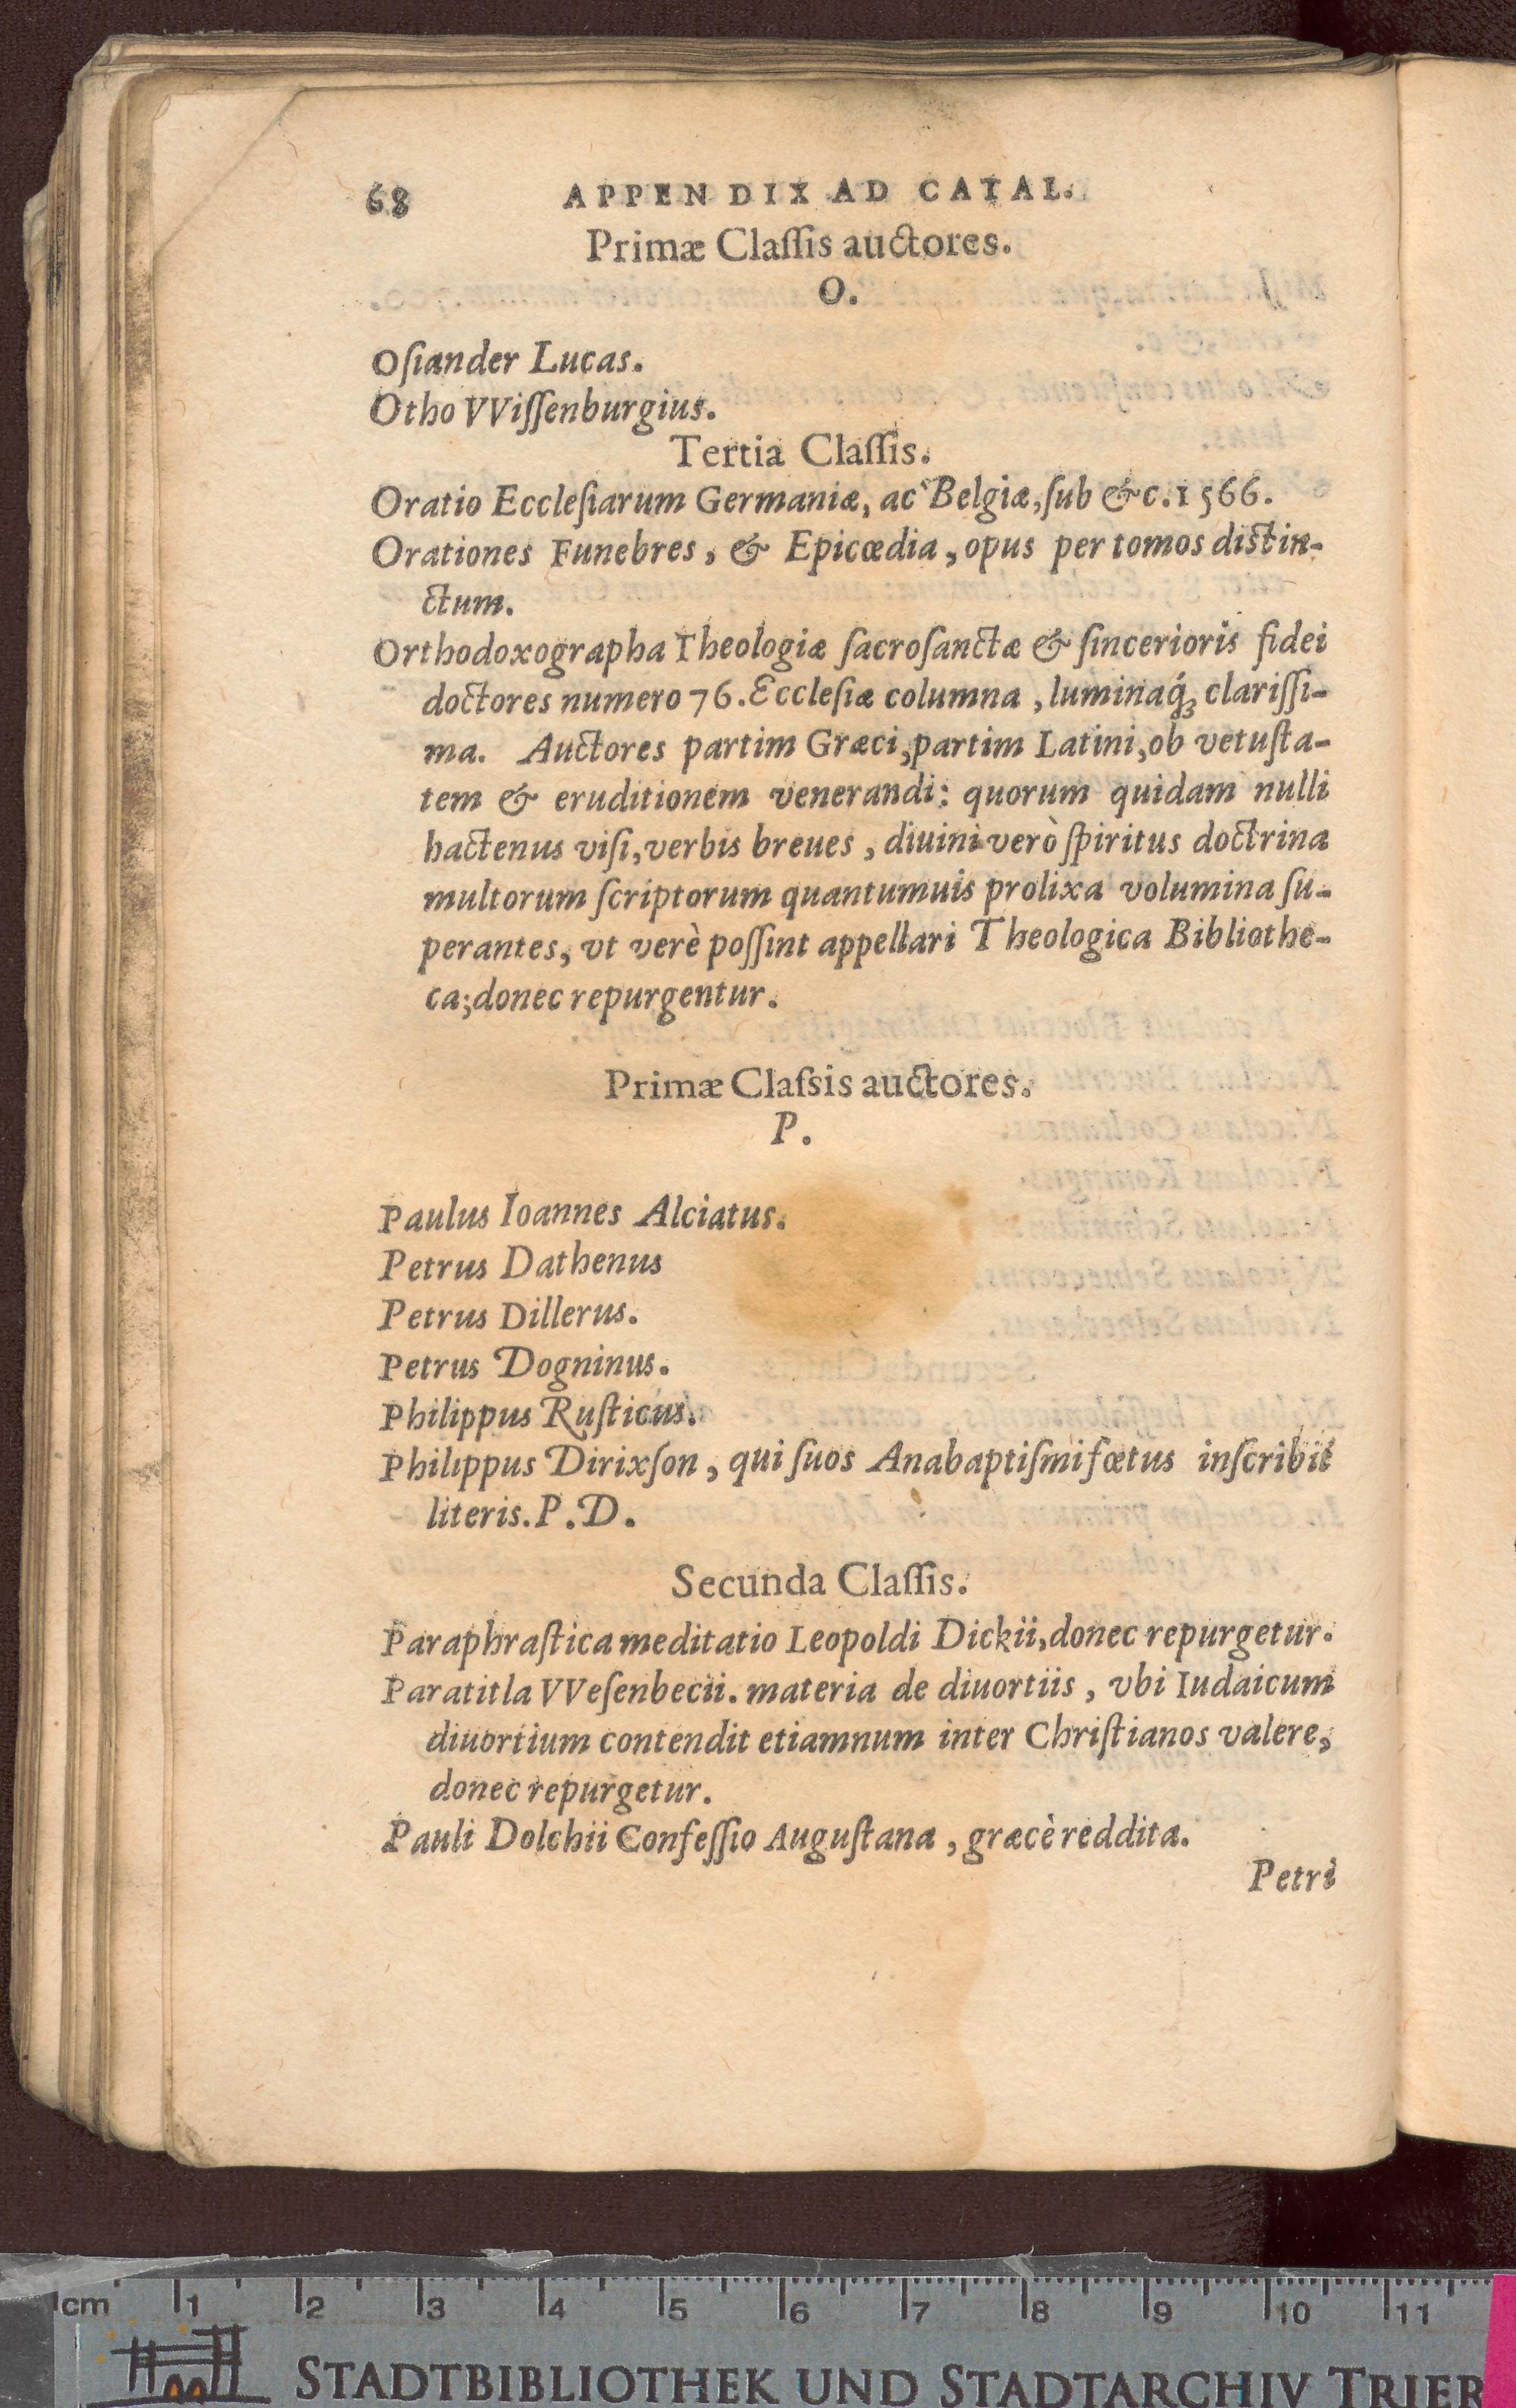 68 APPENDIX AD CATAL.
Primæ Claſſis auctores.
O.
Oſiander Lucas.
Otho VViſſenburgius.
Tertia Claſſis.
Oratio Eccleſiarum Germaniæ, ac Belgiæ, ſub &c. 1566.
Orationes Funebres, & Epicœdia, opus per tomos distin-
ctum.
Orthodoxographa Theologiæ ſacroſanctæ & ſincerioris fidei
doctores numero 76. Eccleſiæ columna, luminaq́ꝫ clariſſi-
ma. Auctores partim Græci, partim Latini, ob vetuſta-
tem & eruditionem venerandi: quorum quidam nulli
hactenus viſi, verbis breues, diuini verò ſpiritus doctrina
multorum ſcriptorum quantumuis prolixa volumina ſu-
perantes, vt verè poſſint appellari Theologica Bibliothe-
ca; donec repurgentur.
Primæ Claſsis auctores.
P.
Paulus Ioannes Alciatus.
Petrus Dathenus
Petrus Dillerus.
Petrus Dogninus.
Philippus Ruſticus.
Philippus Dirixſon, qui ſuos Anabaptiſmi fœtus inſcribit
literis. P. D.
Secunda Claſſis.
Paraphraſtica meditatio Leopoldi Dickii, donec repurgetur.
Paratitla VVeſenbecii. materia de diuortiis, vbi Iudaicum
diuortium contendit etiamnum inter Chriſtianos valere,
donec repurgetur.
Pauli Dolchii Confeſſio Auguſtana, græcè reddita.
Petri
cm 1 2 3 4 5 6 7 8 9 10 11
STADTBIBLIOTHEK UND STADTARCHIV TRIER